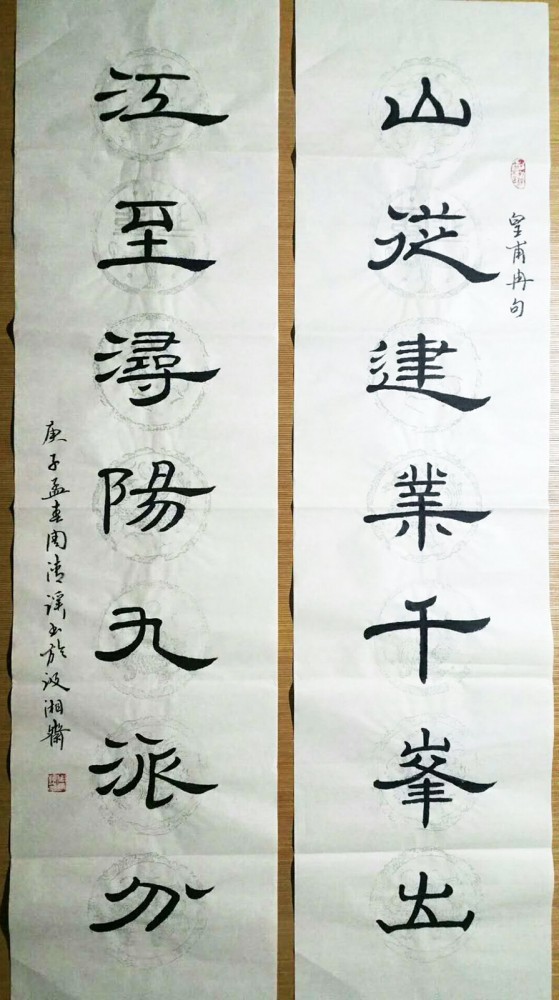 山從建業千峯出
皇甫冉句
江至潯陽九派分
庚子孟春周清書於湘齋